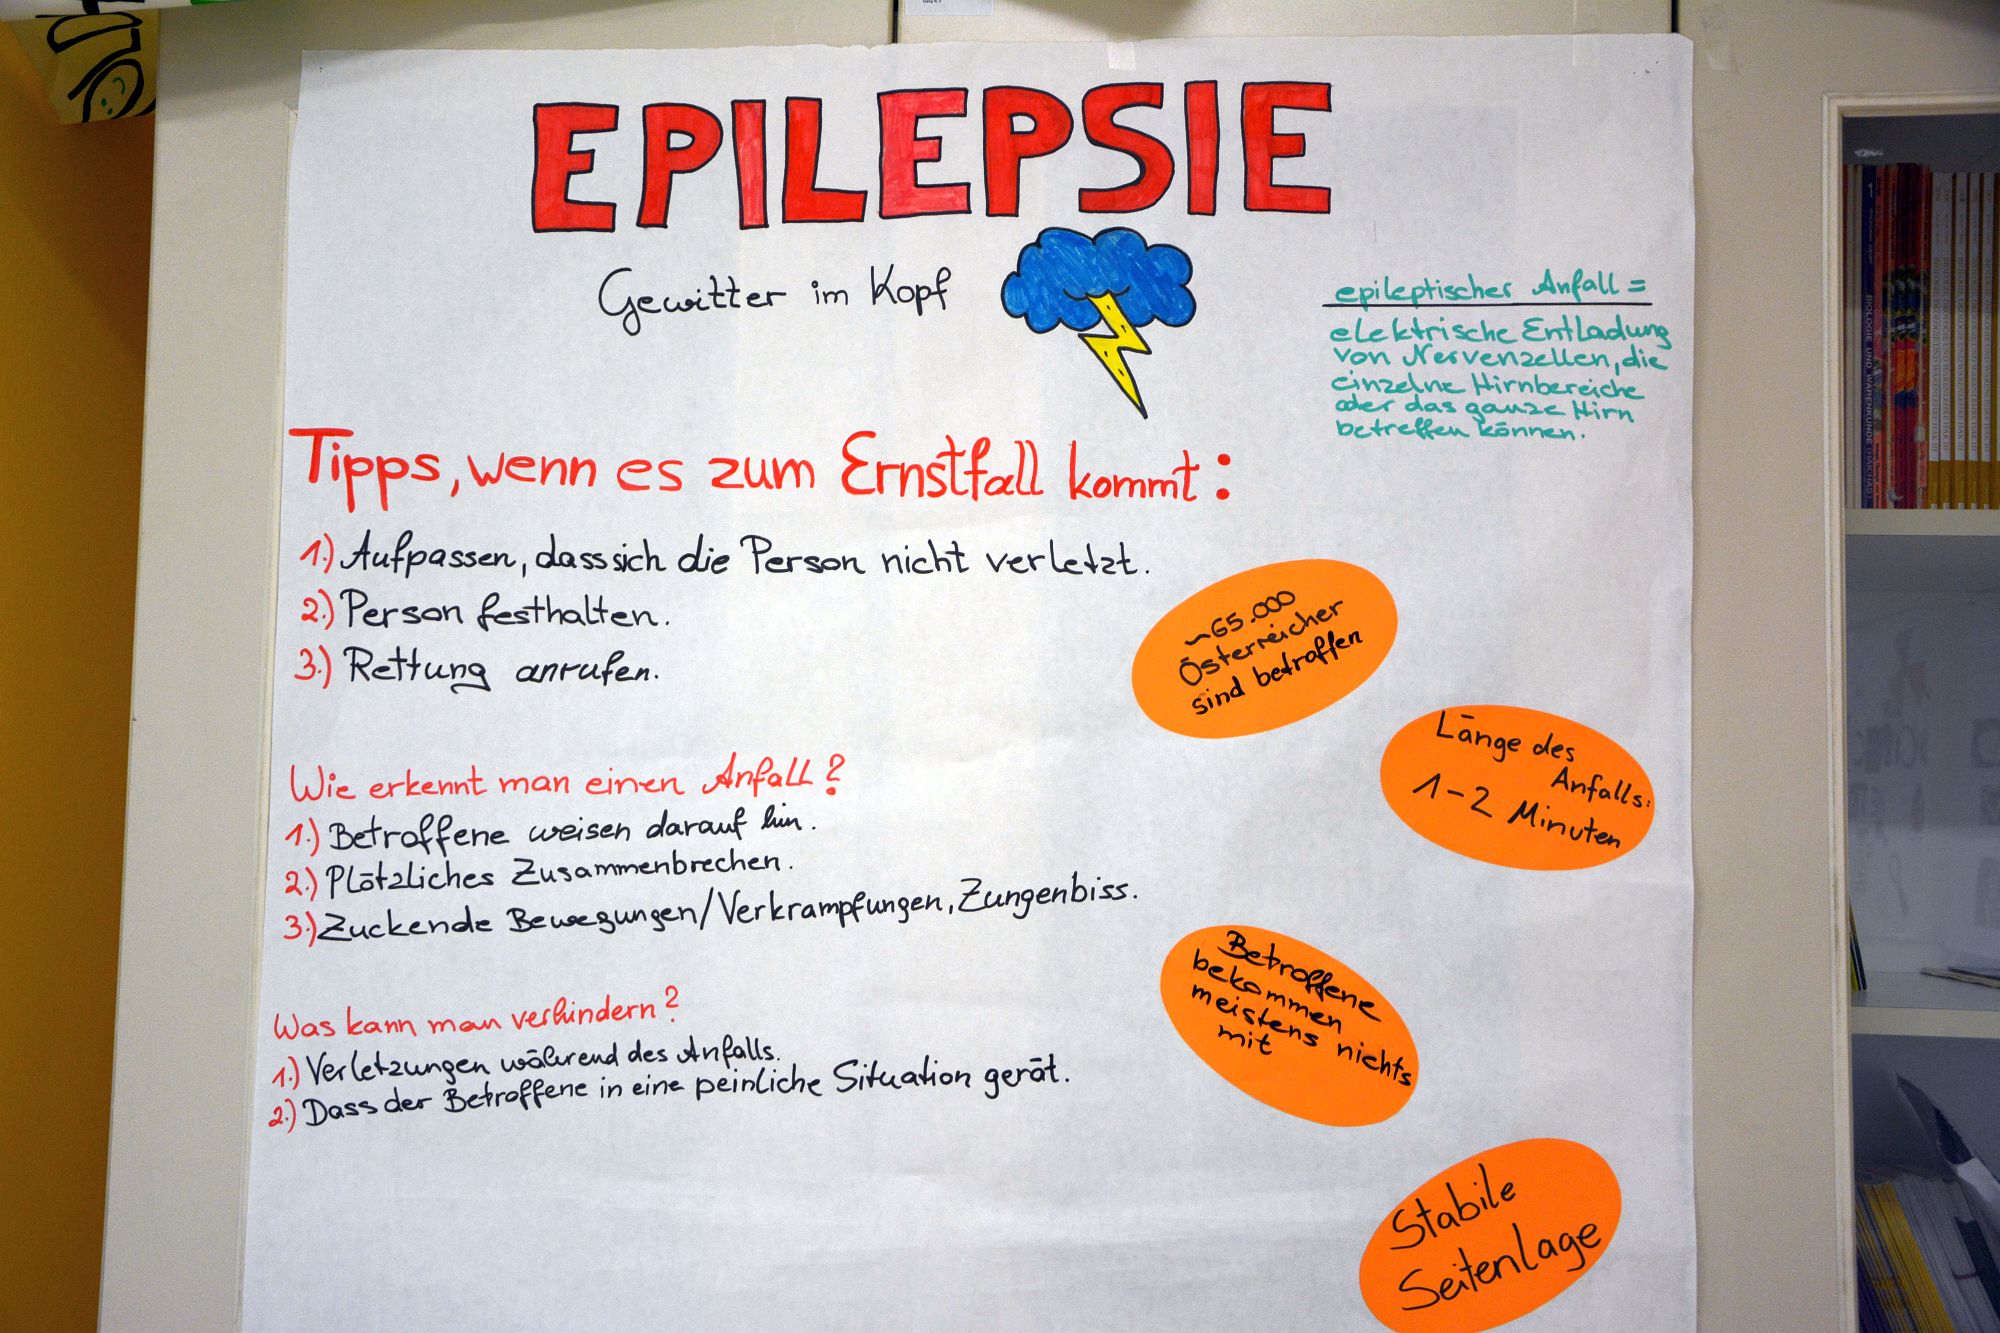 EPILEPSIE
Gewitter im Kopf
epileptischer Anfall =
elektrische Entladung
von Nervenzellen, die
einzelne Hirnbereiche
oder das ganze Hirn
betreffen können.
Tipps, wenn es zum Ernstfall kommt:
1.) Aufpassen, dass sich die Person nicht verletzt.
2.) Person festhalten.
3.) Rettung anrufen.
~65.000
Österreicher
sind betroffen
Länge des
Anfalls:
1-2 Minuten
Wie erkennt man einen Anfall?
1.) Betroffene weisen darauf hin.
2.) Plötzliches Zusammenbrechen.
3.) Zuckende Bewegungen/Verkrampfungen, Zungenbiss.
Betroffene
bekommen
meistens nichts
mit
Was kann man verhindern?
1.) Verletzungen während des Anfalls.
2.) Dass der Betroffene in eine peinliche Situation gerät.
Stabile
Seitenlage
BIOLOGIE UND WARENKUNDE (HAK/HAS)